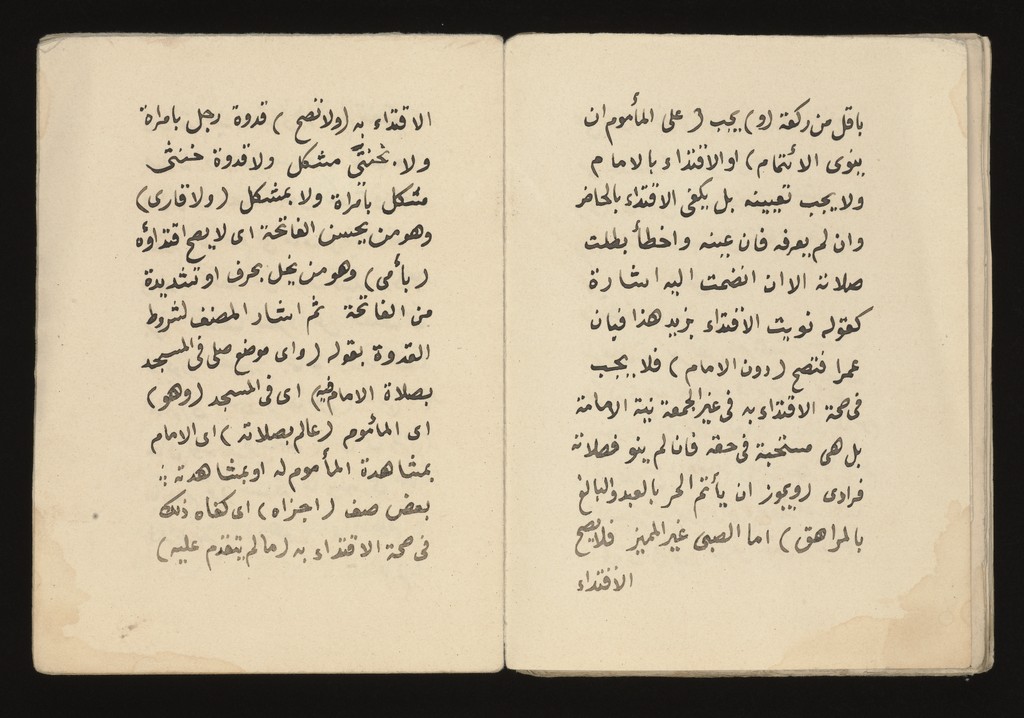 باقل من ركعة (و) يجب (على المأموم ان
ينوى الائتمام) او الاقتداء بالامام
ولا يجب تعيينه بل يكفى الاقتداء بالحاضر
وان لم يعرفه فان عينه واخطأ بطلت
صلاته الا ان انضمت اليه اشارة
كقوله نويت الاقتداء بزيد هذا فبان
عمرا فتصح (دون الامام) فلا يجب
فى صحة الاقتداء به فى غير الجمعة نية الامامة
بل هى مستحبة فى حقه فان لم ينو فصلاته
فرادى (ويجوز ان يأتم الحر بالعبد والبالغ
بالمراهق) اما الصبى غير المميز فلا يصح
الاقتداء
الاقتداء به (ولا تصح) قدوة رجل بامراة
ولا بخنثى مشكل ولا قدوة خنثى
مشكل بامراة ولا بمشكل (ولا قارى)
وهو من يحسن الفاتحة اى لا يصح اقتداؤه
(بأمى) وهو من يخل بحرف او تشديدة
من الفاتحة ثم اشار المصنف لشروط
القدوة بقوله (واى موضع صلى فى المسجد
بصلاة الامام فيه) اى فى المسجد (وهو)
اى المائموم (عالم بصلاته) اى الامام
بمشاهدة المأموم له او بمشاهدته
بعض صف (اجزاه) اى كفاه ذلك
فى صحة الاقتداء به (مالم يتقدم عليه)